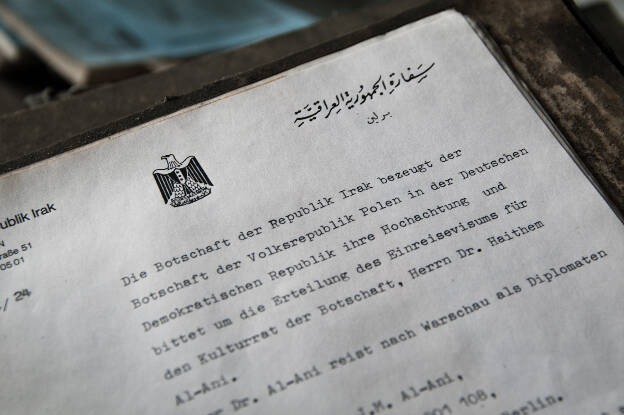 سفارة الجمهورية العراقية
برلين
ublik Irak
N
raße 51
05 01
/ 24
Die Botschaft der Republik Irak bezeugt der
Botschaft der Volksrepublik Polen in der Deutschen
Demokratischen Republik ihre Hochachtung und
bittet um die Erteilung des Einreisevisums für
den Kulturrat der Botschaft, Herrn Dr. Haithem
Al-Ani.
r Dr. Al-Ani reist nach Warschau als Diplomaten
.M. Al-Ani,
01 108,
erlin.